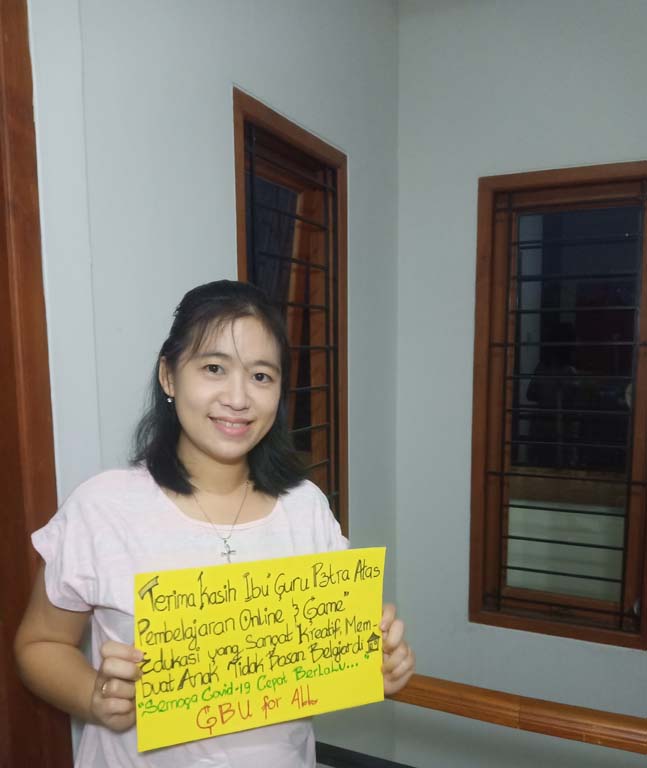 Terima Kasih Ibu Guru P3tra Atas
Pembelajaran Online & Game"
Edukasi yang Sangat Kreatif, Mem-
buat Anak "Tidak Bosan Belajar di
"Semoga Covid-19 Cepat Berlalu..."
GBU for All